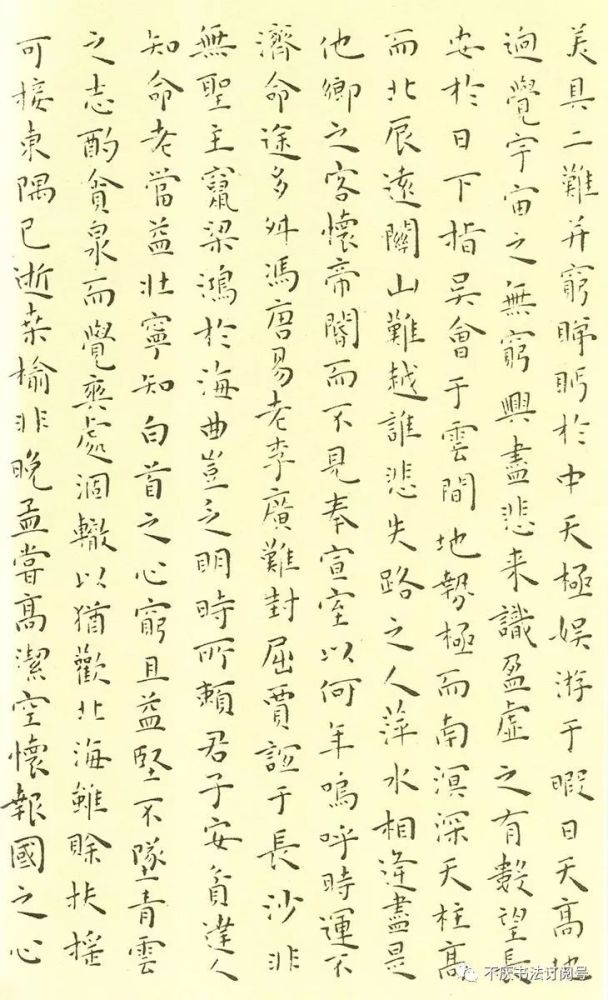 美具二難并窮睇眄於中天極娛游于暇日天高地
迥覺宇宙之無窮興盡悲来識盈虛之有數望長
安於日下指吳會于雲間地勢極而南溟深天柱高
而北辰遠關山難越誰悲失路之人萍水相逢盡是
他鄉之客懷帝閽而不見奉宣室以何年嗚呼時運不
濟命途多舛馮唐易老李廣難封屈賈誼于長沙非
無聖主竄梁鴻於海曲豈乏明時所賴君子安貧達人
知命老當益壯寧知白首之心窮且益堅不墜青雲
之志酌貪泉而覺爽處涸轍以猶歡北海雖賒扶搖
可接東隅已逝桑榆非晚孟嘗高潔空懷報國之心
不厌书法订阅号